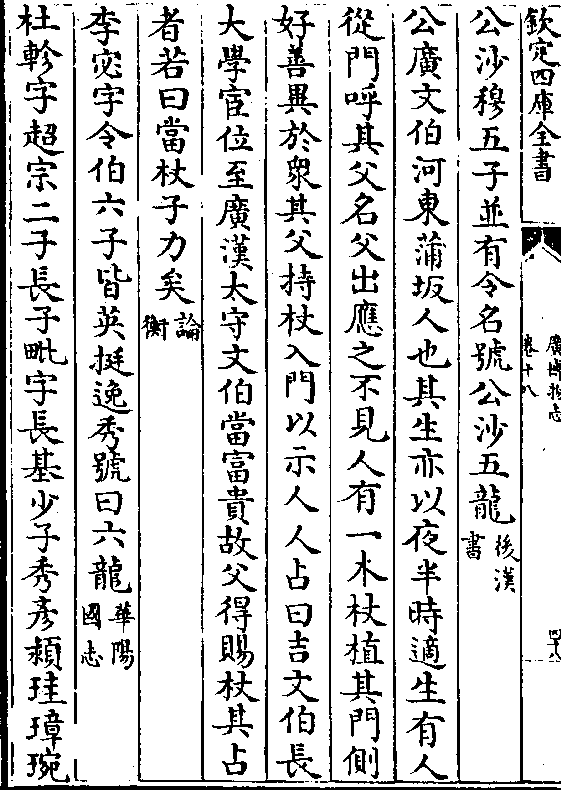 欽定四庫全書
廣博物志
卷十八
四十八
公沙穆五子並有令名號公沙五龍後漢書
公廣文伯河東蒲坂人也其生亦以夜半時適生有人
從門呼其父名父出應之不見人有一木杖植其門側
好善異於衆其父持杖入門以示人人占曰吉文伯長
大學宦位至廣漢太守文伯當富貴故父得賜杖其占
者若曰當杖子力矣論衡
李宓字令伯六子皆英挺逸秀號曰六龍華陽國志
杜軫字超宗二子長子毗字長基少子秀彥潁珪璋琬